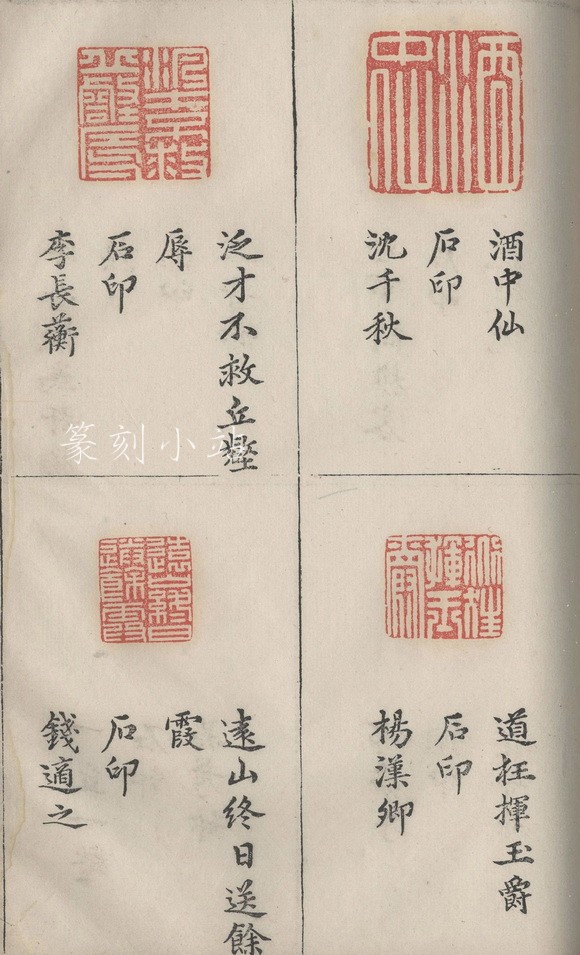 酒中仙
石印
沈千秋
泛才不救丘壑
辱
石印
李長蘅
道枉揮玉爵
石印
楊漢卿
遠山終日送餘
霞
石印
錢適之
篆刻小站